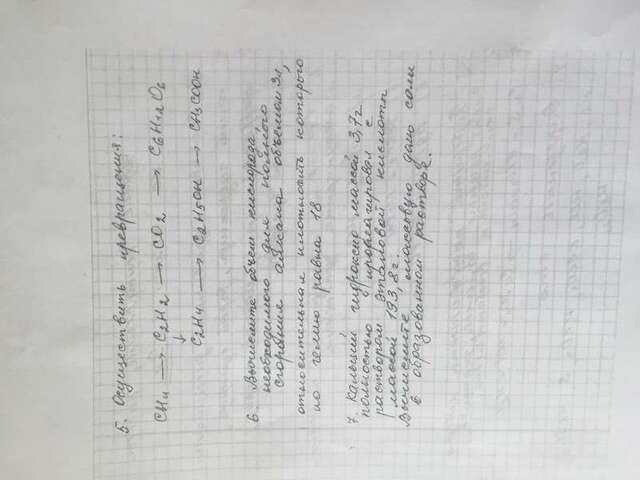 5. Осуществить превращения:
CH4 → C2H2 → CO2 → C6H12O6
↓
C2H4 → C2H5OH → CH3COOH
6. Вычислите объем кислорода,
необходимого для полного
сгорания алкана объемом 3л,
относительная плотность которого
по гелию равна 18
7. Кальций гидроксид массой 3,7г
полностью прореагировал с
раствором этановой кислоты
массой 193,8г.
Вычислите массовую долю соли
в образованном растворе.